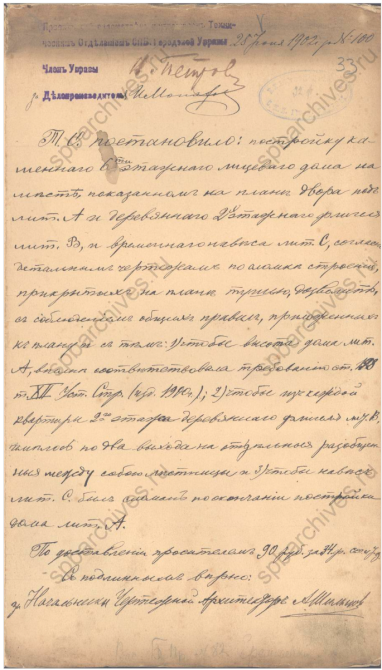 Техни-
ческимъ Отдѣленіемъ СПБ. Городской Управы 28 Іюня 190 г. № 100
33
Членъ Управы Петровъ
Дѣлопроизводитель
Т. О. постановило: постройку ка-
меннаго 6ти этажнаго лицеваго дома на
мѣстѣ, показанномъ на планѣ двора подъ
лит. А и деревяннаго 2хъ этажнаго флигеля
лит. В, и временнаго навѣса лит. С, согласно
детальнымъ чертежамъ по сломкѣ строеній,
прикрытыхъ на планѣ тушью, дозволить,
съ соблюденіемъ общихъ правилъ,
къ плану и съ тѣмъ: 1) чтобы высота дома лит.
А, вполнѣ соотвѣтствовала требованію ст.
т. XII Уст. Стр. (изд. 1900 г.); 2) чтобы изъ каждой
квартиры 2го этажа деревяннаго флигеля лит. В,
имѣлось по два выхода на отдѣльныя разобщен-
ныя между собою лѣстницы и 3) чтобы навѣсъ
лит. С. былъ сломанъ по окончаніи постройки
дома лит. А.
По доставленіи просителемъ 90 руб. за
Съ подлиннымъ вѣрно:
Начальника Чертежной Архитекторъ А.
spbarchives.ru